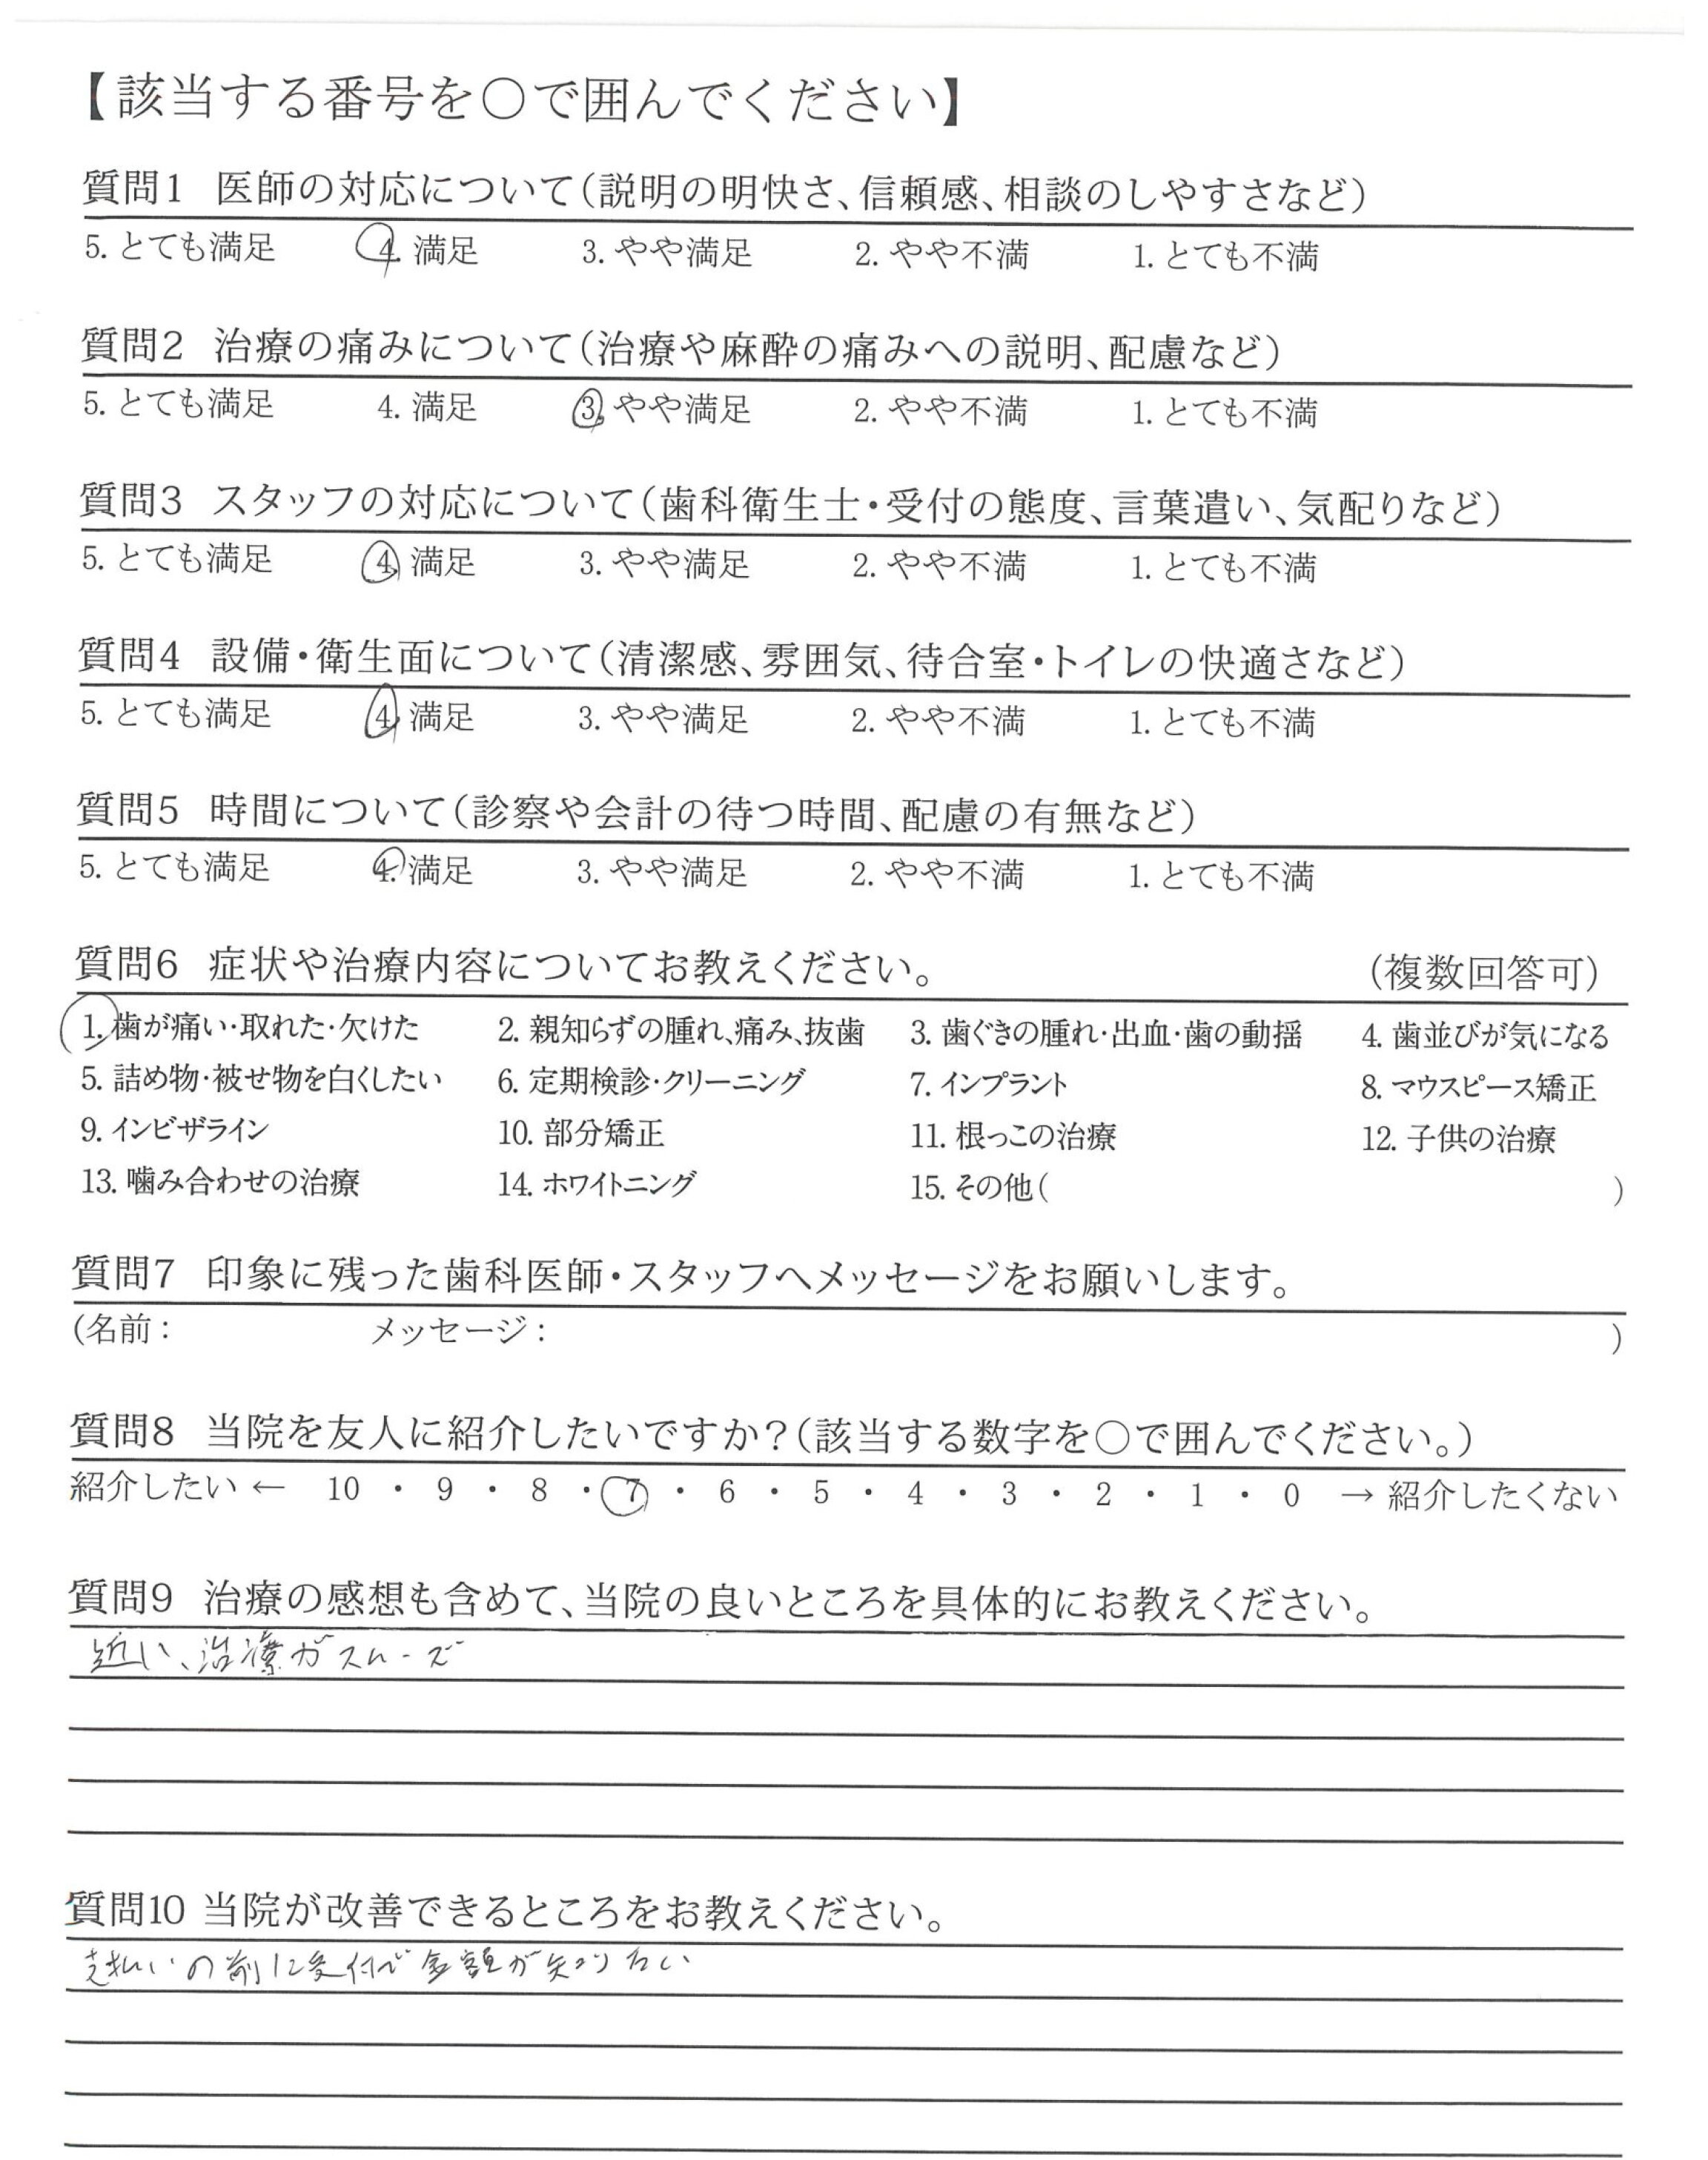 【該当する番号を○で囲んでください】
質問1 医師の対応について(説明の明快さ、信頼感、相談のしやすさなど)
5. とても満足 4. 満足 3. やや満足 2. やや不満 1. とても不満
質問2 治療の痛みについて(治療や麻酔の痛みへの説明、配慮など)
5. とても満足 4. 満足 3. やや満足 2. やや不満 1. とても不満
質問3 スタッフの対応について(歯科衛生士・受付の態度、言葉遣い、気配りなど)
5. とても満足 4. 満足 3. やや満足 2. やや不満 1. とても不満
質問4 設備・衛生面について(清潔感、雰囲気、待合室・トイレの快適さなど)
5. とても満足 4. 満足 3. やや満足 2. やや不満 1. とても不満
質問5 時間について(診察や会計の待つ時間、配慮の有無など)
5. とても満足 4. 満足 3. やや満足 2. やや不満 1. とても不満
質問6 症状や治療内容についてお教えください。 (複数回答可)
1. 歯が痛い・取れた・欠けた 2. 親知らずの腫れ、痛み、抜歯 3. 歯ぐきの腫れ・出血・歯の動揺 4. 歯並びが気になる
5. 詰め物・被せ物を白くしたい 6. 定期検診・クリーニング 7. インプラント 8. マウスピース矯正
9. インビザライン 10. 部分矯正 11. 根っこの治療 12. 子供の治療
13. 噛み合わせの治療 14. ホワイトニング 15. その他( )
質問7 印象に残った歯科医師・スタッフへメッセージをお願いします。
(名前: メッセージ: )
質問8 当院を友人に紹介したいですか?(該当する数字を○で囲んでください。)
紹介したい ← 10 ・ 9 ・ 8 ・ 7 ・ 6 ・ 5 ・ 4 ・ 3 ・ 2 ・ 1 ・ 0 → 紹介したくない
質問9 治療の感想も含めて、当院の良いところを具体的にお教えください。
近い、治療がスムーズ
質問10 当院が改善できるところをお教えください。
支払いの前に受付で金額が知りたい